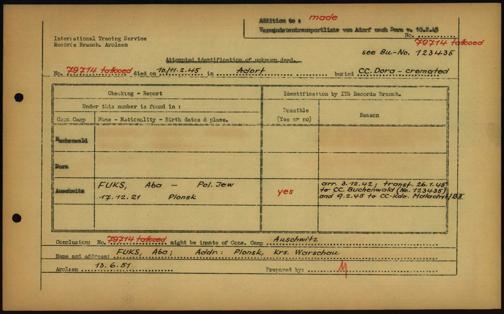 Addition to : made
Verstorbenentransportliste von Adorf nach Dora v. 10.2.45
No. 79714 tattooed
International Tracing Service
Records Branch, Arolsen
see Bu.-No. 123435
Attempted identification of unknown dead.
No. 79714 tattooed died on 10/11.2.45 in Adorf buried CC. Dora - cremated
Checking - Report
Identification by ITS Records Branch.
Under this number is found in :
Possible (Yes or no)
Reason
Conc. Camp
Name - Nationality - Birth dates & place.
Buchenwald
Dora
Auschwitz
FUKS, Aba - Pol. Jew
17.12.21 Plonsk
yes
arr. 3.12.42; transf. 26.1.45
to CC. Buchenwald (No. 123435)
and 9.2.45 to CC-Kdo.
Conclusion: No. 79714 tattooed might be inmate of Conc. Camp Auschwitz
Name and address: FUKS, Aba; Addr: Plonsk, Krs. Warschau
Arolsen 13.6.51
Prepared by: